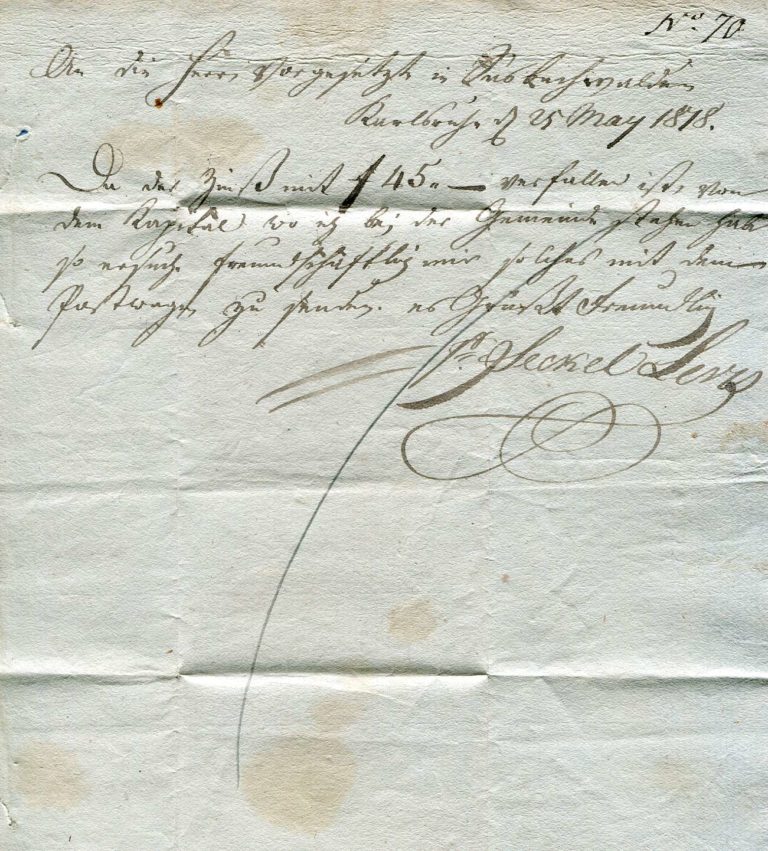 No. 70
An die Herrn Vorgesetzte in Sasbachwalden
Karlsruhe d 25 May 1818.
Da der Zinß mit f 45 „ — verfallen ist, von
dem Kapital wo ich bej der Gemeinde stehen hab
so ersuche freundschäftlig mir solches mit dem
Postwagen zu senden. es Grüßt Freundlig
Seckel Levy